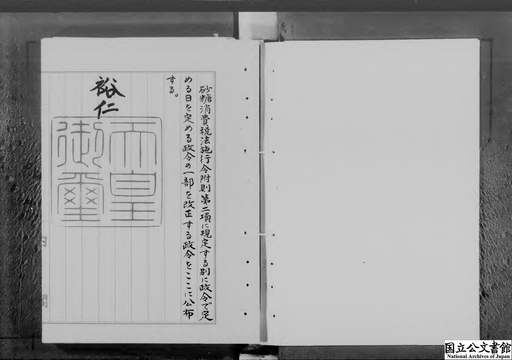 砂糖消費税法施行令附則第二項に規定する別に政令で定
める日を定める政令の一部を改正する政令をここに公布
する。
裕仁
天皇
御璽
国立公文書館
National Archives of Japan